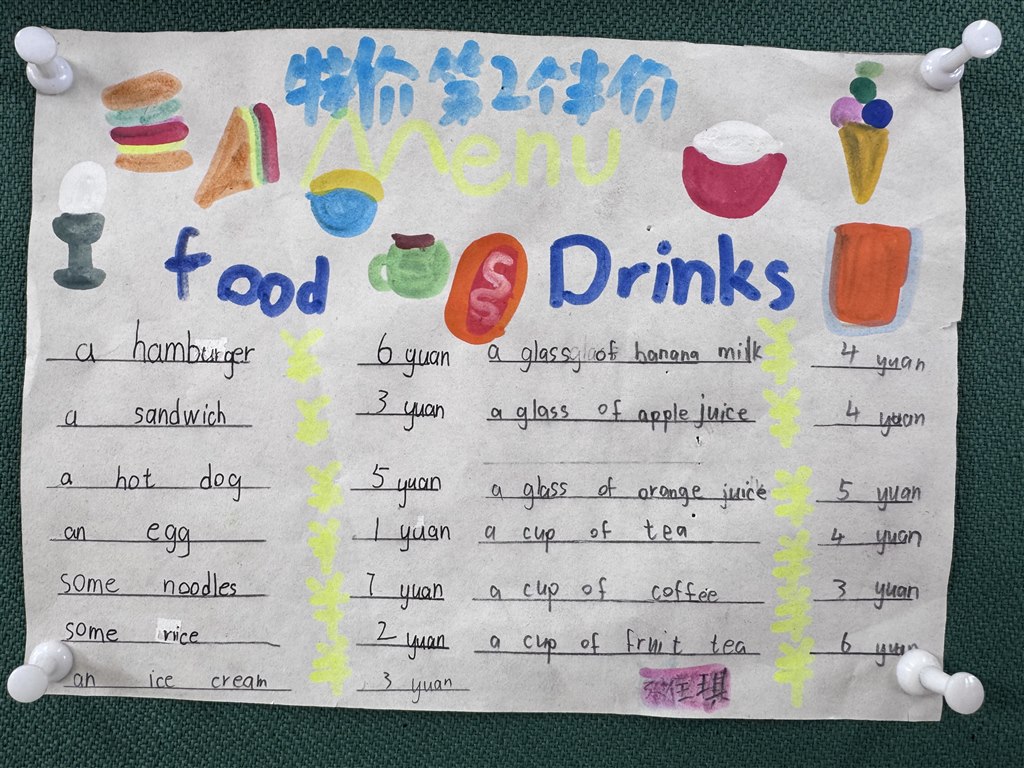 特价 第2个半价
Menu
food Drinks
a hamburger ¥ 6 yuan a glass of banana milk ¥ 4 yuan
a sandwich ¥ 3 yuan a glass of apple juice ¥ 4 yuan
a hot dog ¥ 5 yuan a glass of orange juice ¥ 5 yuan
an egg ¥ 1 yuan a cup of tea ¥ 4 yuan
some noodles ¥ 7 yuan a cup of coffee ¥ 3 yuan
some rice ¥ 2 yuan a cup of fruit tea ¥ 6 yuan
an ice cream ¥ 3 yuan